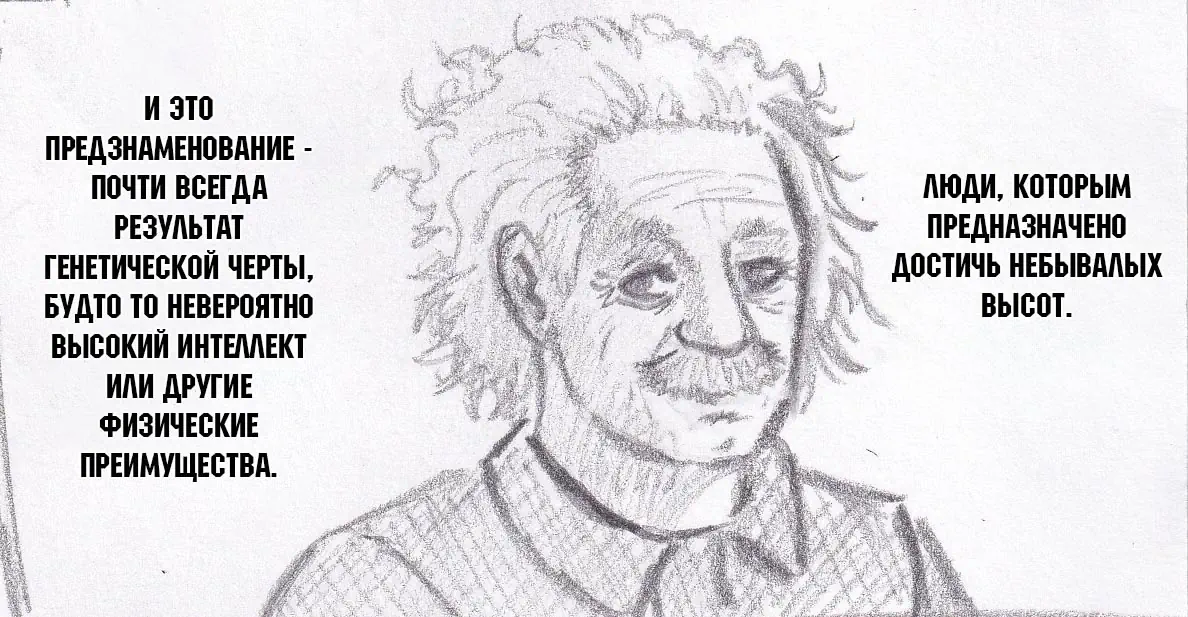 И ЭТО
ПРЕДЗНАМЕНОВАНИЕ -
ПОЧТИ ВСЕГДА
РЕЗУЛЬТАТ
ГЕНЕТИЧЕСКОЙ ЧЕРТЫ,
БУДТО ТО НЕВЕРОЯТНО
ВЫСОКИЙ ИНТЕЛЛЕКТ
ИЛИ ДРУГИЕ
ФИЗИЧЕСКИЕ
ПРЕИМУЩЕСТВА.
ЛЮДИ, КОТОРЫМ
ПРЕДНАЗНАЧЕНО
ДОСТИЧЬ НЕБЫВАЛЫХ
ВЫСОТ.